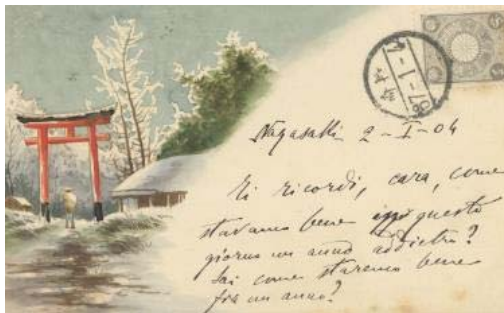 Nagasaki 2-I-04
Ti ricordi, cara, come
stavamo bene questo
giorno un anno addietro?
Sai come staremo bene
fra un anno?